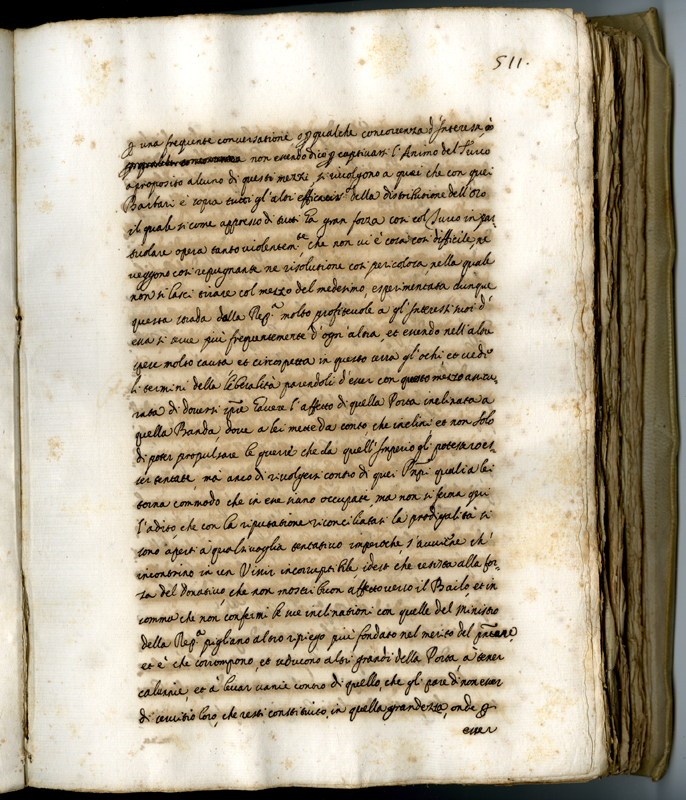 511.
una frequente conversatione, ò qualche concorrenza d'Interessi
non essendo dico captivarsi l'Animo del Turco
aproposito alcuno di questi mezzi si rivolgono a quei che con quei
Barbari è sopra tutti gl'altri efficaciss.º della distributione dell'oro
il quale si come appresso di tutti hà gran forza così col Turco in par„
ticolare opera tanto violentem.te che non vi è cosa così difficile, ne
veggono così repugnante ne risolutione così pericolosa nella quale
non si lasci tirare col mezzo del medesimo, esperimentata dunque
questa strada dalla Rep.ca molto profittevole a gl'Interessi suoi d'
essa si serve più frequentemente d'ogn'altra, et essendo nell'altre
spese molto cauta et circospetta in questo serra gl'ochi et ecede
li termini della liberalità parendoli d'esser con questo mezzo assicu„
rata di doversi sempre havere l'affetto di quella Porta inclinata a
quella Banda, dove a lei mette da conto che inclini et non solo
di poter propulsare le guerre che da quell'Imperio gli potessero es„
ser tentate, mà anco di rivolgersi contro di quei Prñpi quali a lei
torna commodo che in esse siano occupati, ma non si ferma qui
l'adito, che con la riputatione riconciliatasi la prodigalità si
sono aperti a qual si voglia tentativo imperoche, s'avviene ch'
incontrino in un Visir incorruptibile idest che resista alla for„
za del Donativo, che non mostri buon affetto verso il Bailo, et in
somma che non confermi le sue inclinationi con quelle del Ministro
della Rep.ca pigliano altro ripiego più fondato nel merito del
et è che corrompono, et riducono altri grandi della Porta a tener
calunie et à levar vanie contro di quello, che gli pare di non esser
di servitio loro, che resti constituito in quella grandezza, onde
esser